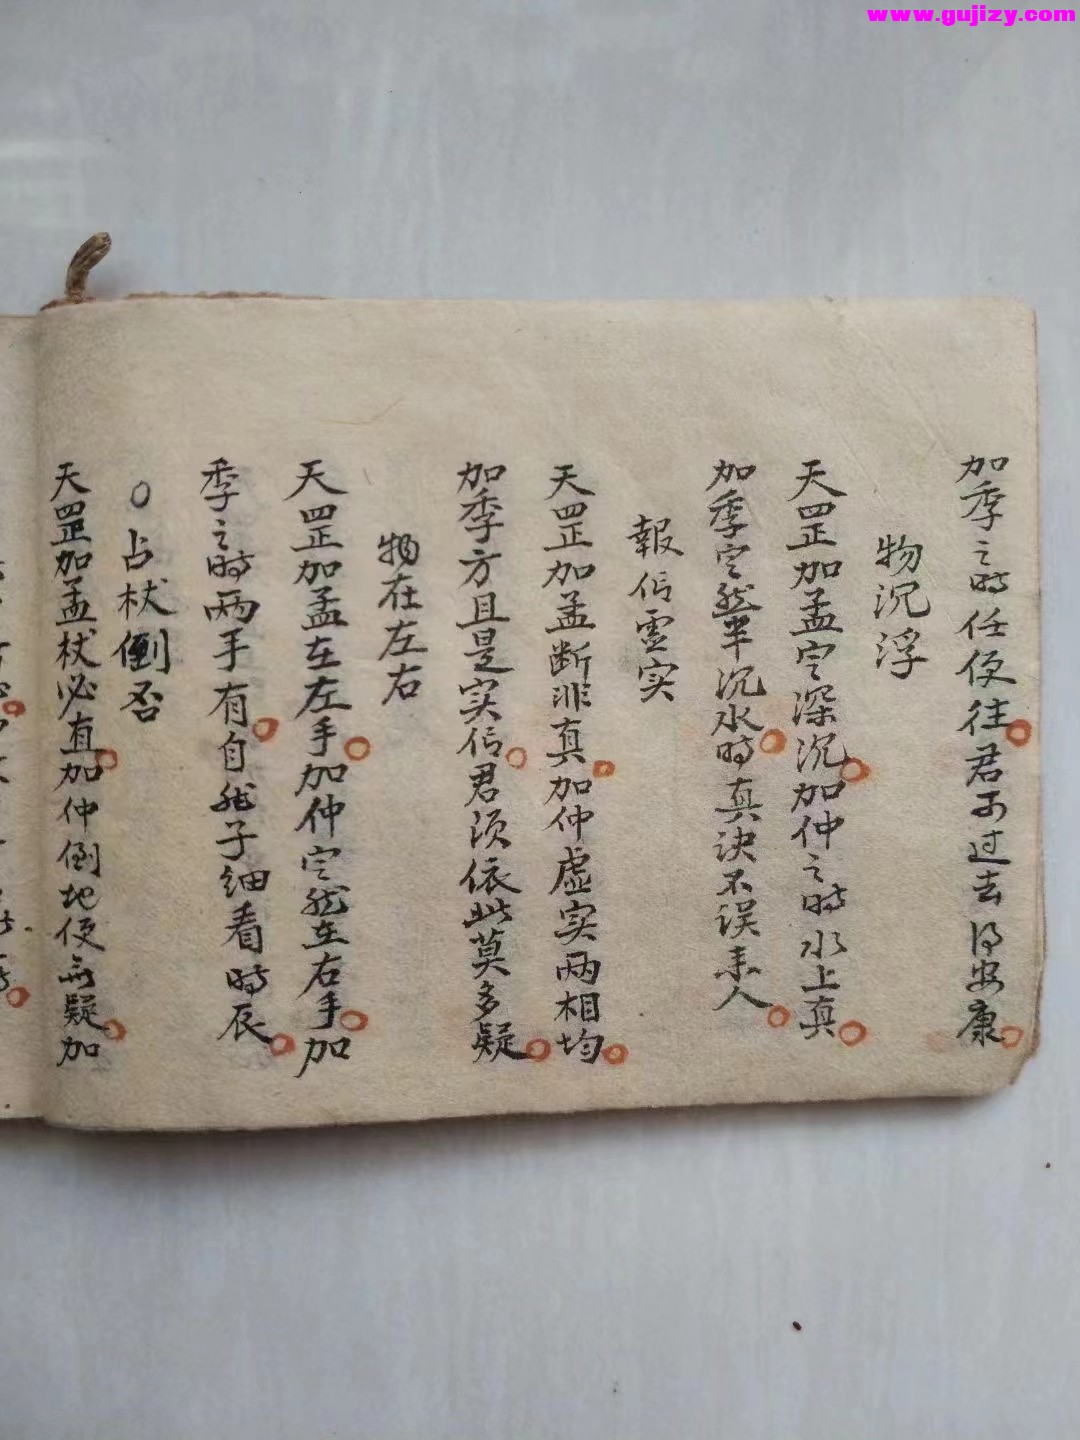 www.gujizy.com
加季之時任便往君可过去得安康
物沉浮
天罡加孟定深沉加仲之時水上真
加季定然半沉水時真决不误来人
報信虚实
天罡加孟断非真加仲虚实两相均
加季方且是实信君须依此莫多疑
物在左右
天罡加孟在左手加仲定然在右手加
季之時两手有自然子细看時辰
○占杖倒否
天罡加孟杖必直加仲倒地便无疑加